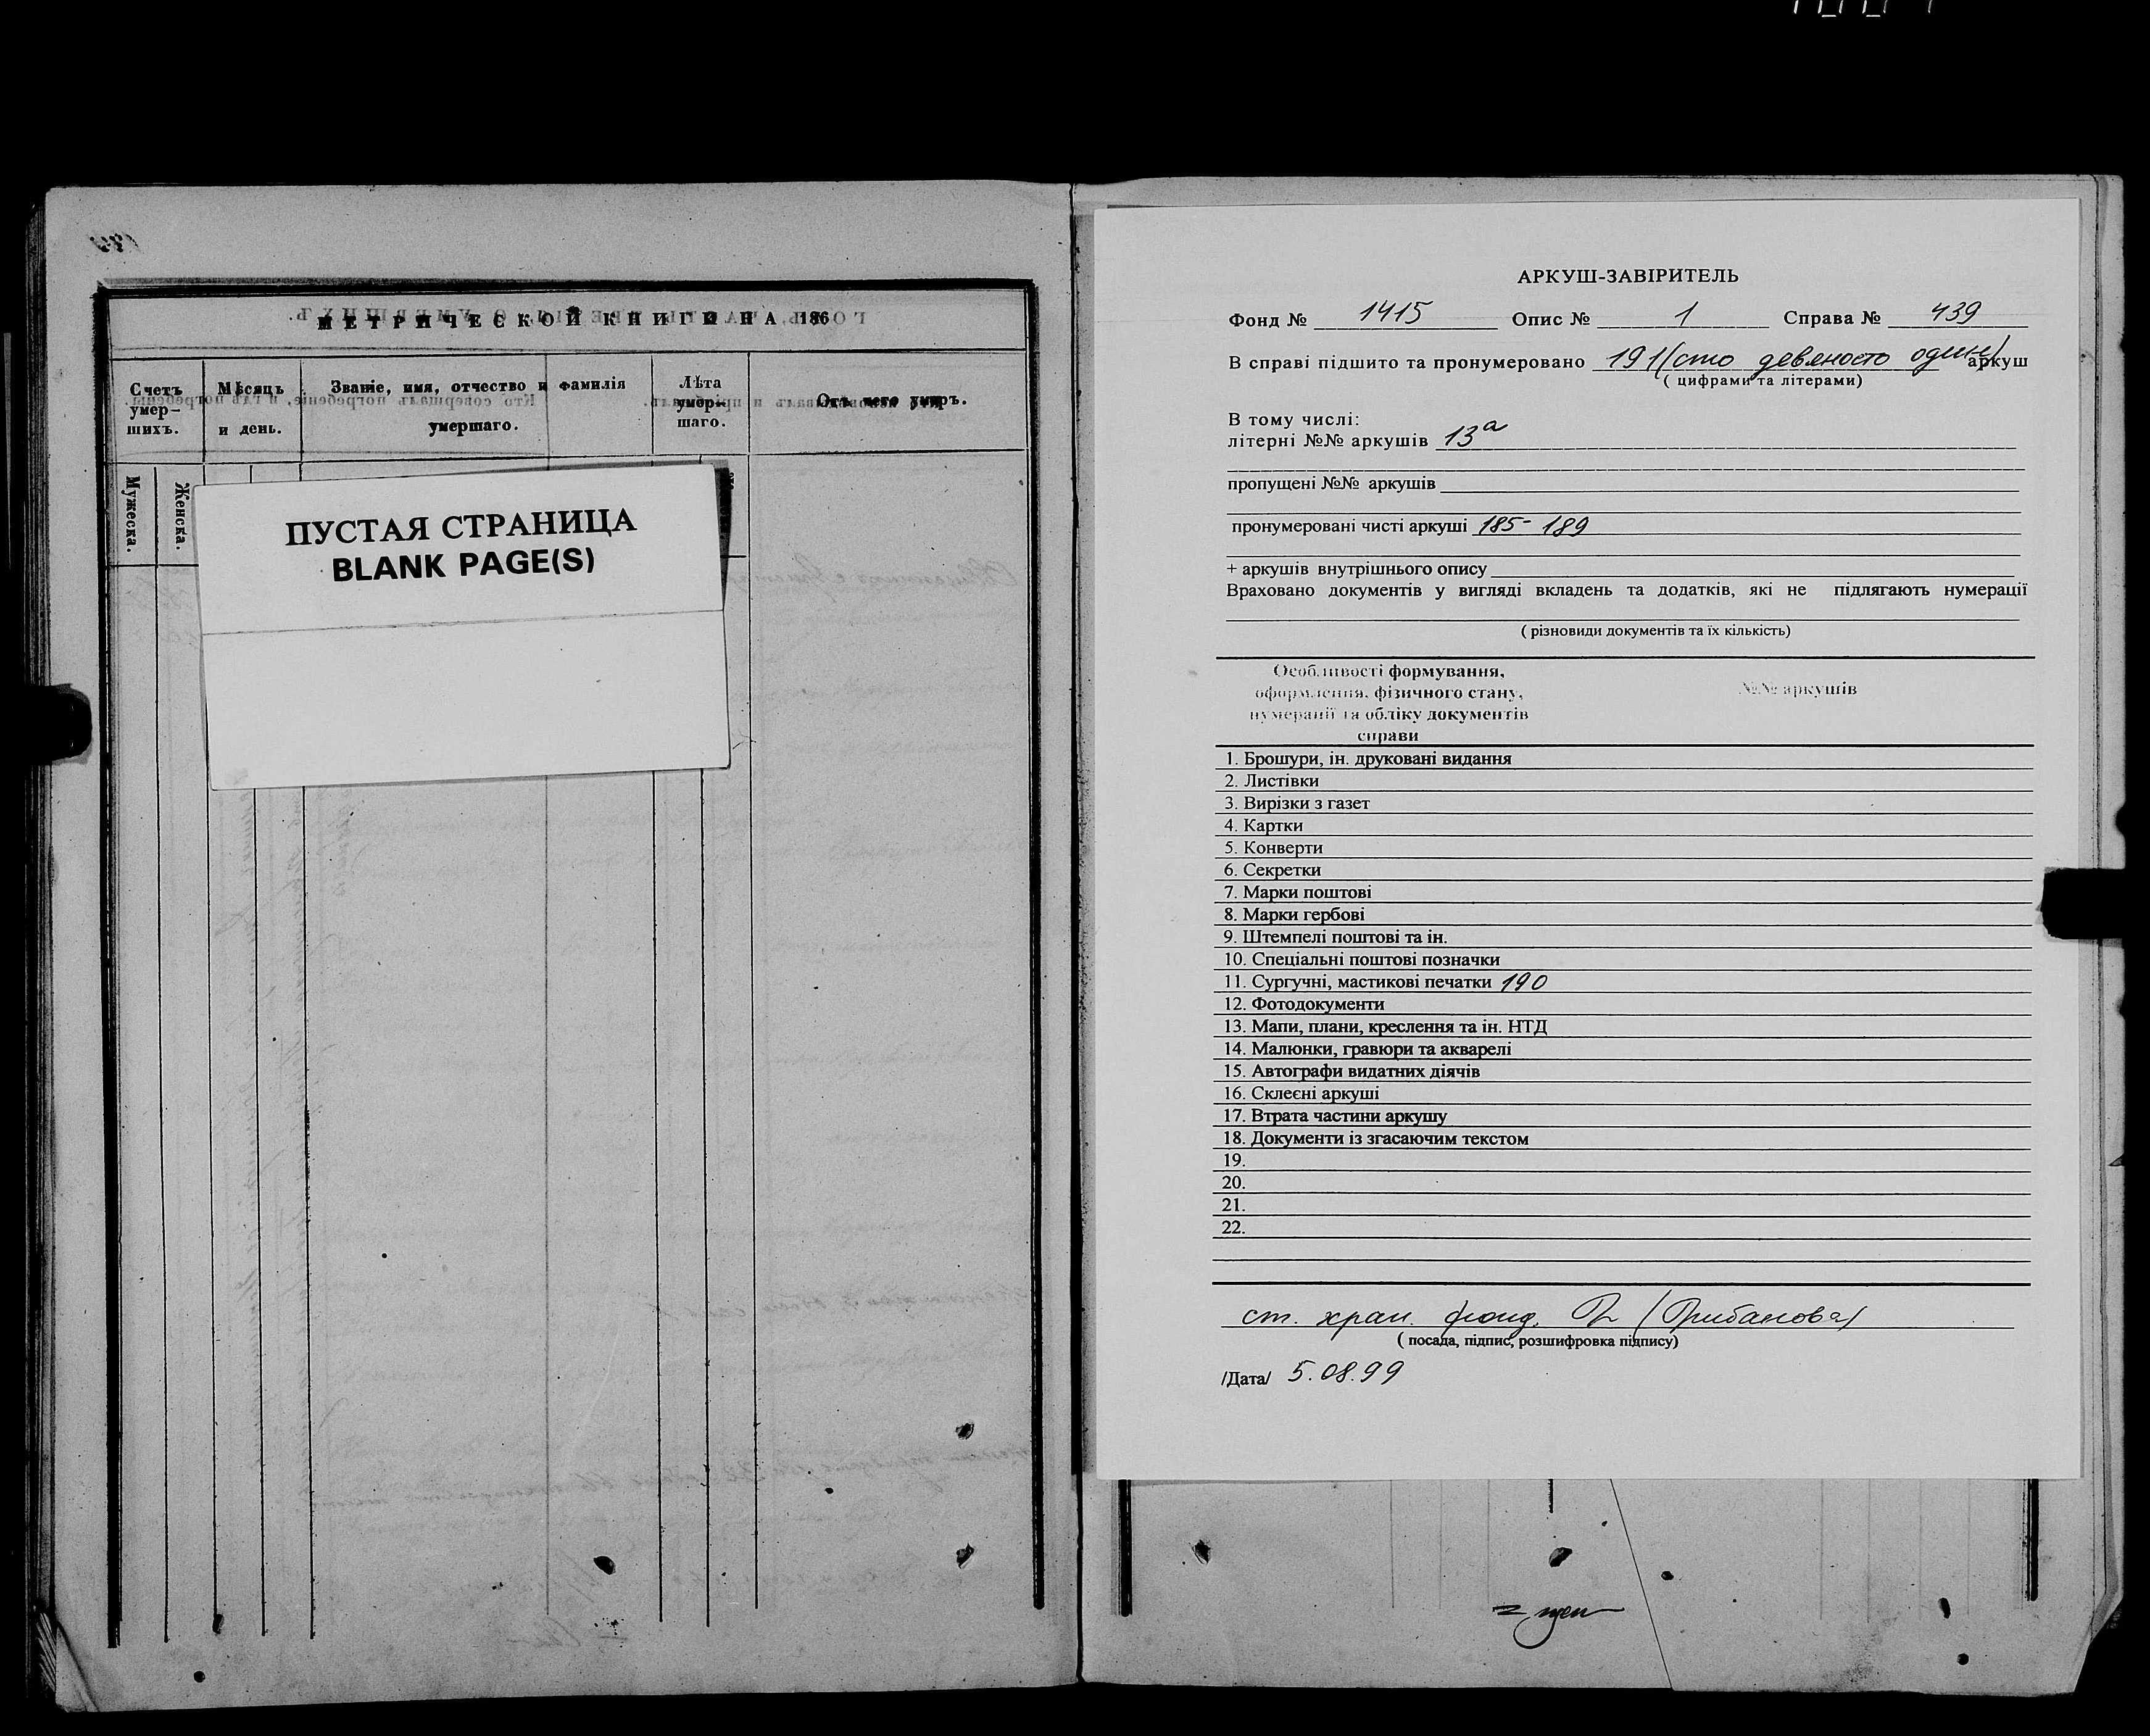 МЕТРИЧЕСКОЙ КНИГИ НА 186
Счетъ умер-шихъ.
Мѣсяцъ и день.
Званіе, имя, отчество и фамилія умершаго.
Лѣта умер-шаго.
Отъ чего умеръ.
Мужеска.
Женска.
ПУСТАЯ СТРАНИЦА
BLANK PAGE(S)
АРКУШ-ЗАВІРИТЕЛЬ
Фонд № 1415 Опис № 1 Справа № 439
В справі підшито та пронумеровано 191 (сто девяносто один) аркуш
( цифрами та літерами)
В тому числі:
літерні №№ аркушів 13а
пропущені №№ аркушів
пронумеровані чисті аркуші 185-189
+ аркушів внутрішнього опису
Враховано документів у вигляді вкладень та додатків, які не підлягають нумерації
( різновиди документів та їх кількість)
Особливості формування,
оформлення, фізичного стану, №№ аркушів
нумерації та обліку документів
справи
1. Брошури, ін. друковані видання
2. Листівки
3. Вирізки з газет
4. Картки
5. Конверти
6. Секретки
7. Марки поштові
8. Марки гербові
9. Штемпелі поштові та ін.
10. Спеціальні поштові позначки
11. Сургучні, мастикові печатки 190
12. Фотодокументи
13. Мапи, плани, креслення та ін. НТД
14. Малюнки, гравюри та акварелі
15. Автографи видатних діячів
16. Склеєні аркуші
17. Втрата частини аркушу
18. Документи із згасаючим текстом
19.
20.
21.
22.
ст. хран. фонд. (Грибанова)
( посада, підпис, розшифровка підпису)
/Дата/ 5.08.99